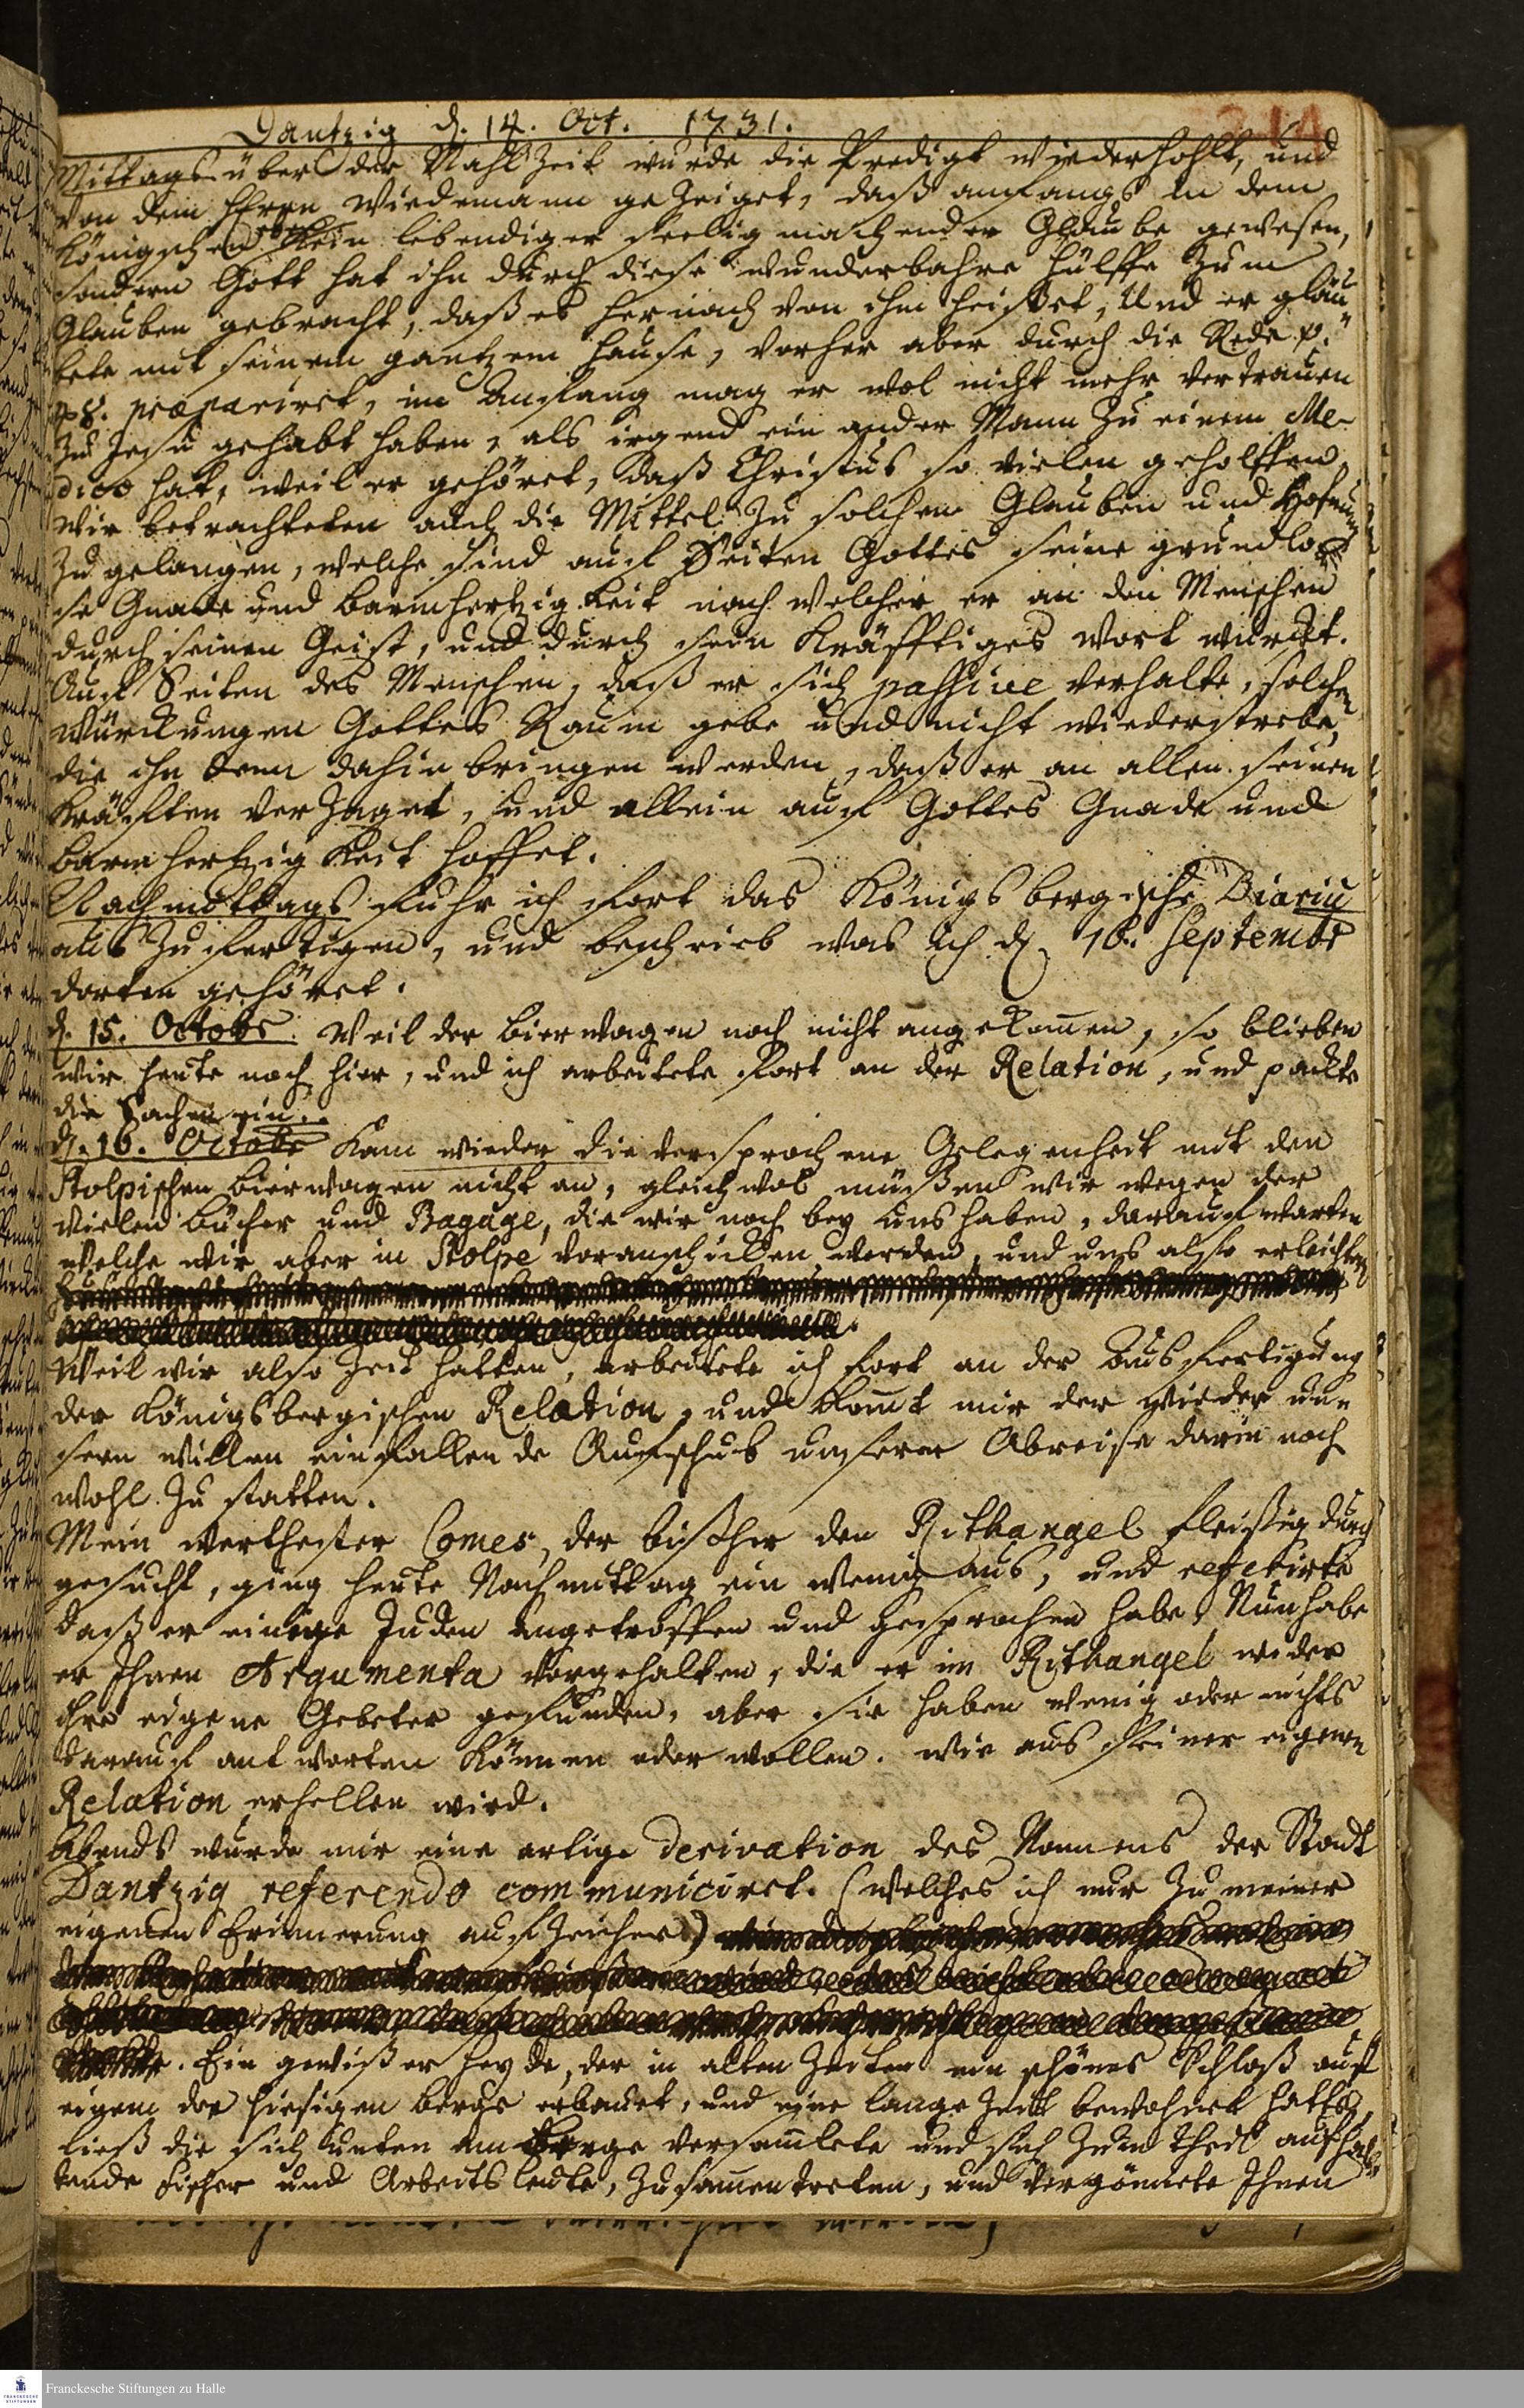 Dantzig d. 14. Oct. 1731.
Mittags über der Mahlzeit wurde die Predigt wiederhohlt, und
von dem Herrn Wiedemann gezeiget, daß anfangs in dem
Königschen kein lebendiger seeligmachender Glaube gewesen,
sondern Gott hat ihn durch diese wunderbahre Hülffe zum
Glauben gebracht, daß es hernach von ihm heißet, Und er gläu-
bete mit seinem gantzem Hause, vorher aber durch die Rede p.
præpariret, im Anfang mag er wol nicht mehr vertrauen
zu Jesu gehabt haben, als irgend ein ander Mann zu einem Me-
dico hat, weil er gehöret, daß Christus so vielen geholffen,
Wir betrachteten auch die Mittel zu solchem Glauben und Hofnung
zu gelangen, welche sind auf Seiten Gottes seine grundlo-
se Gnade und barmhertzigkeit nach welcher er an den Menschen
durch seinen Geist, und durch sein kräfftiges Wort würckt.
Auf Seiten des Menschen, daß er sich passive verhalte, solchen
Würckungen Gottes Raum gebe und nicht wiederstrebe,
die ihn denn dahin bringen werden, daß er an allen seinen
Kräfften verzaget, und allein auf Gottes Gnade und
barmhertzigkeit hoffet.
Nachmittags fuhr ich fort das Königsbergische Diariu
auszufertigen, und beschrieb was ich d. 16. Septembr
dorten gehöret.
d. 15. Octobr. Weil der bierwagen noch nicht angekomen, so blieben
wir heute noch hier, und ich arbeitete fort an der Relation, und packte
die Sachen ein.
d. 16. Octobr kam wieder die versprochene Gelegenheit mit den
Stolpischen bierwagen nicht an, gleichwol müßen wir wegen der
vielen bücher und Bagage, die wir noch bey uns haben, darauf warten
welche wir aber in Stolpe voranschicken werden, und uns also erleichtern
Weil wir also Zeit hatten, arbeitete ich fort an der Ausfertigung
der Königsbergischen Relation, und komt mir der wieder un-
sern willen einfallende Aufschub unserer Abreise darin noch
wohl zu statten.
Mein werthester Comes, der bißher den Rithangel fleißig durch
gesucht, ging heute Nachmittag ein wenig aus, und referirte
daß er einige Juden angetroffen und gesprochen habe, Nun habe
er Ihnen Argumenta vorgehalten, die er im Rithangel wider
ihre eigene Gebeter gefunden, aber sie haben wenig oder nichts
darauf antworten können oder wollen. wie aus seiner eigenen
Relation erhellen wird.
Abends wurde mir eine artige Derivation des Namens der Stadt
Dantzig referendo communiciret. (welches ich nur zu meiner
eigenen Erinnerung aufzeichne)
Ein gewißer Heyde, der in alten Zeiten ein schönes Schloß auf
einem der hiesigen berge erbauet, und eine lange Zeit bewohnet hatte,
ließ die sich unten am berge versamlete und sich zum theil aufhal-
tende Fischer und Arbeitsleute, zusamentreten, und vergönnete Ihnen
Franckesche Stiftungen zu Halle